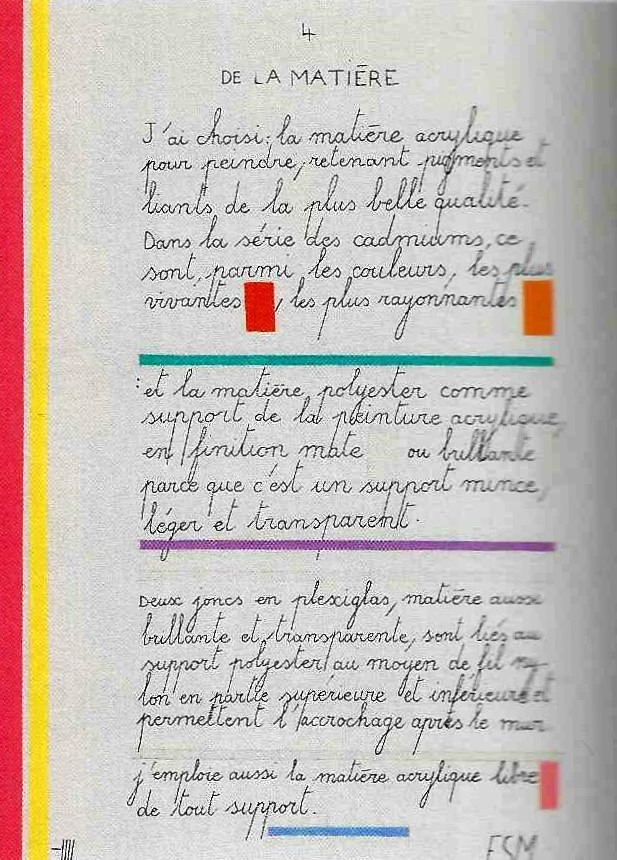 4
DE LA MATIĒRE
J'ai choisi: la matiēre acrylique
pour peindre, retenant pigments et
liants de la plus belle qualité.
Dans la série des cadmiums, ce
sont, parmi les couleurs, les plus
vivantes , les plus rayonnantes
: et la matiēre polyester comme
support de la peinture acrylique,
en finition mate ou brillante
parce que c'est un support mince,
léger et transparent.
Deux joncs en plexiglas, matiēre aussi
brillante et transparente, sont liés au
support polyester au moyen de fil ny-
lon en partie supérieure et inférieure et
permettent l'accrochage aprēs le mur.
j'emploie aussi la matiēre acrylique libre
de tout support.
FSM